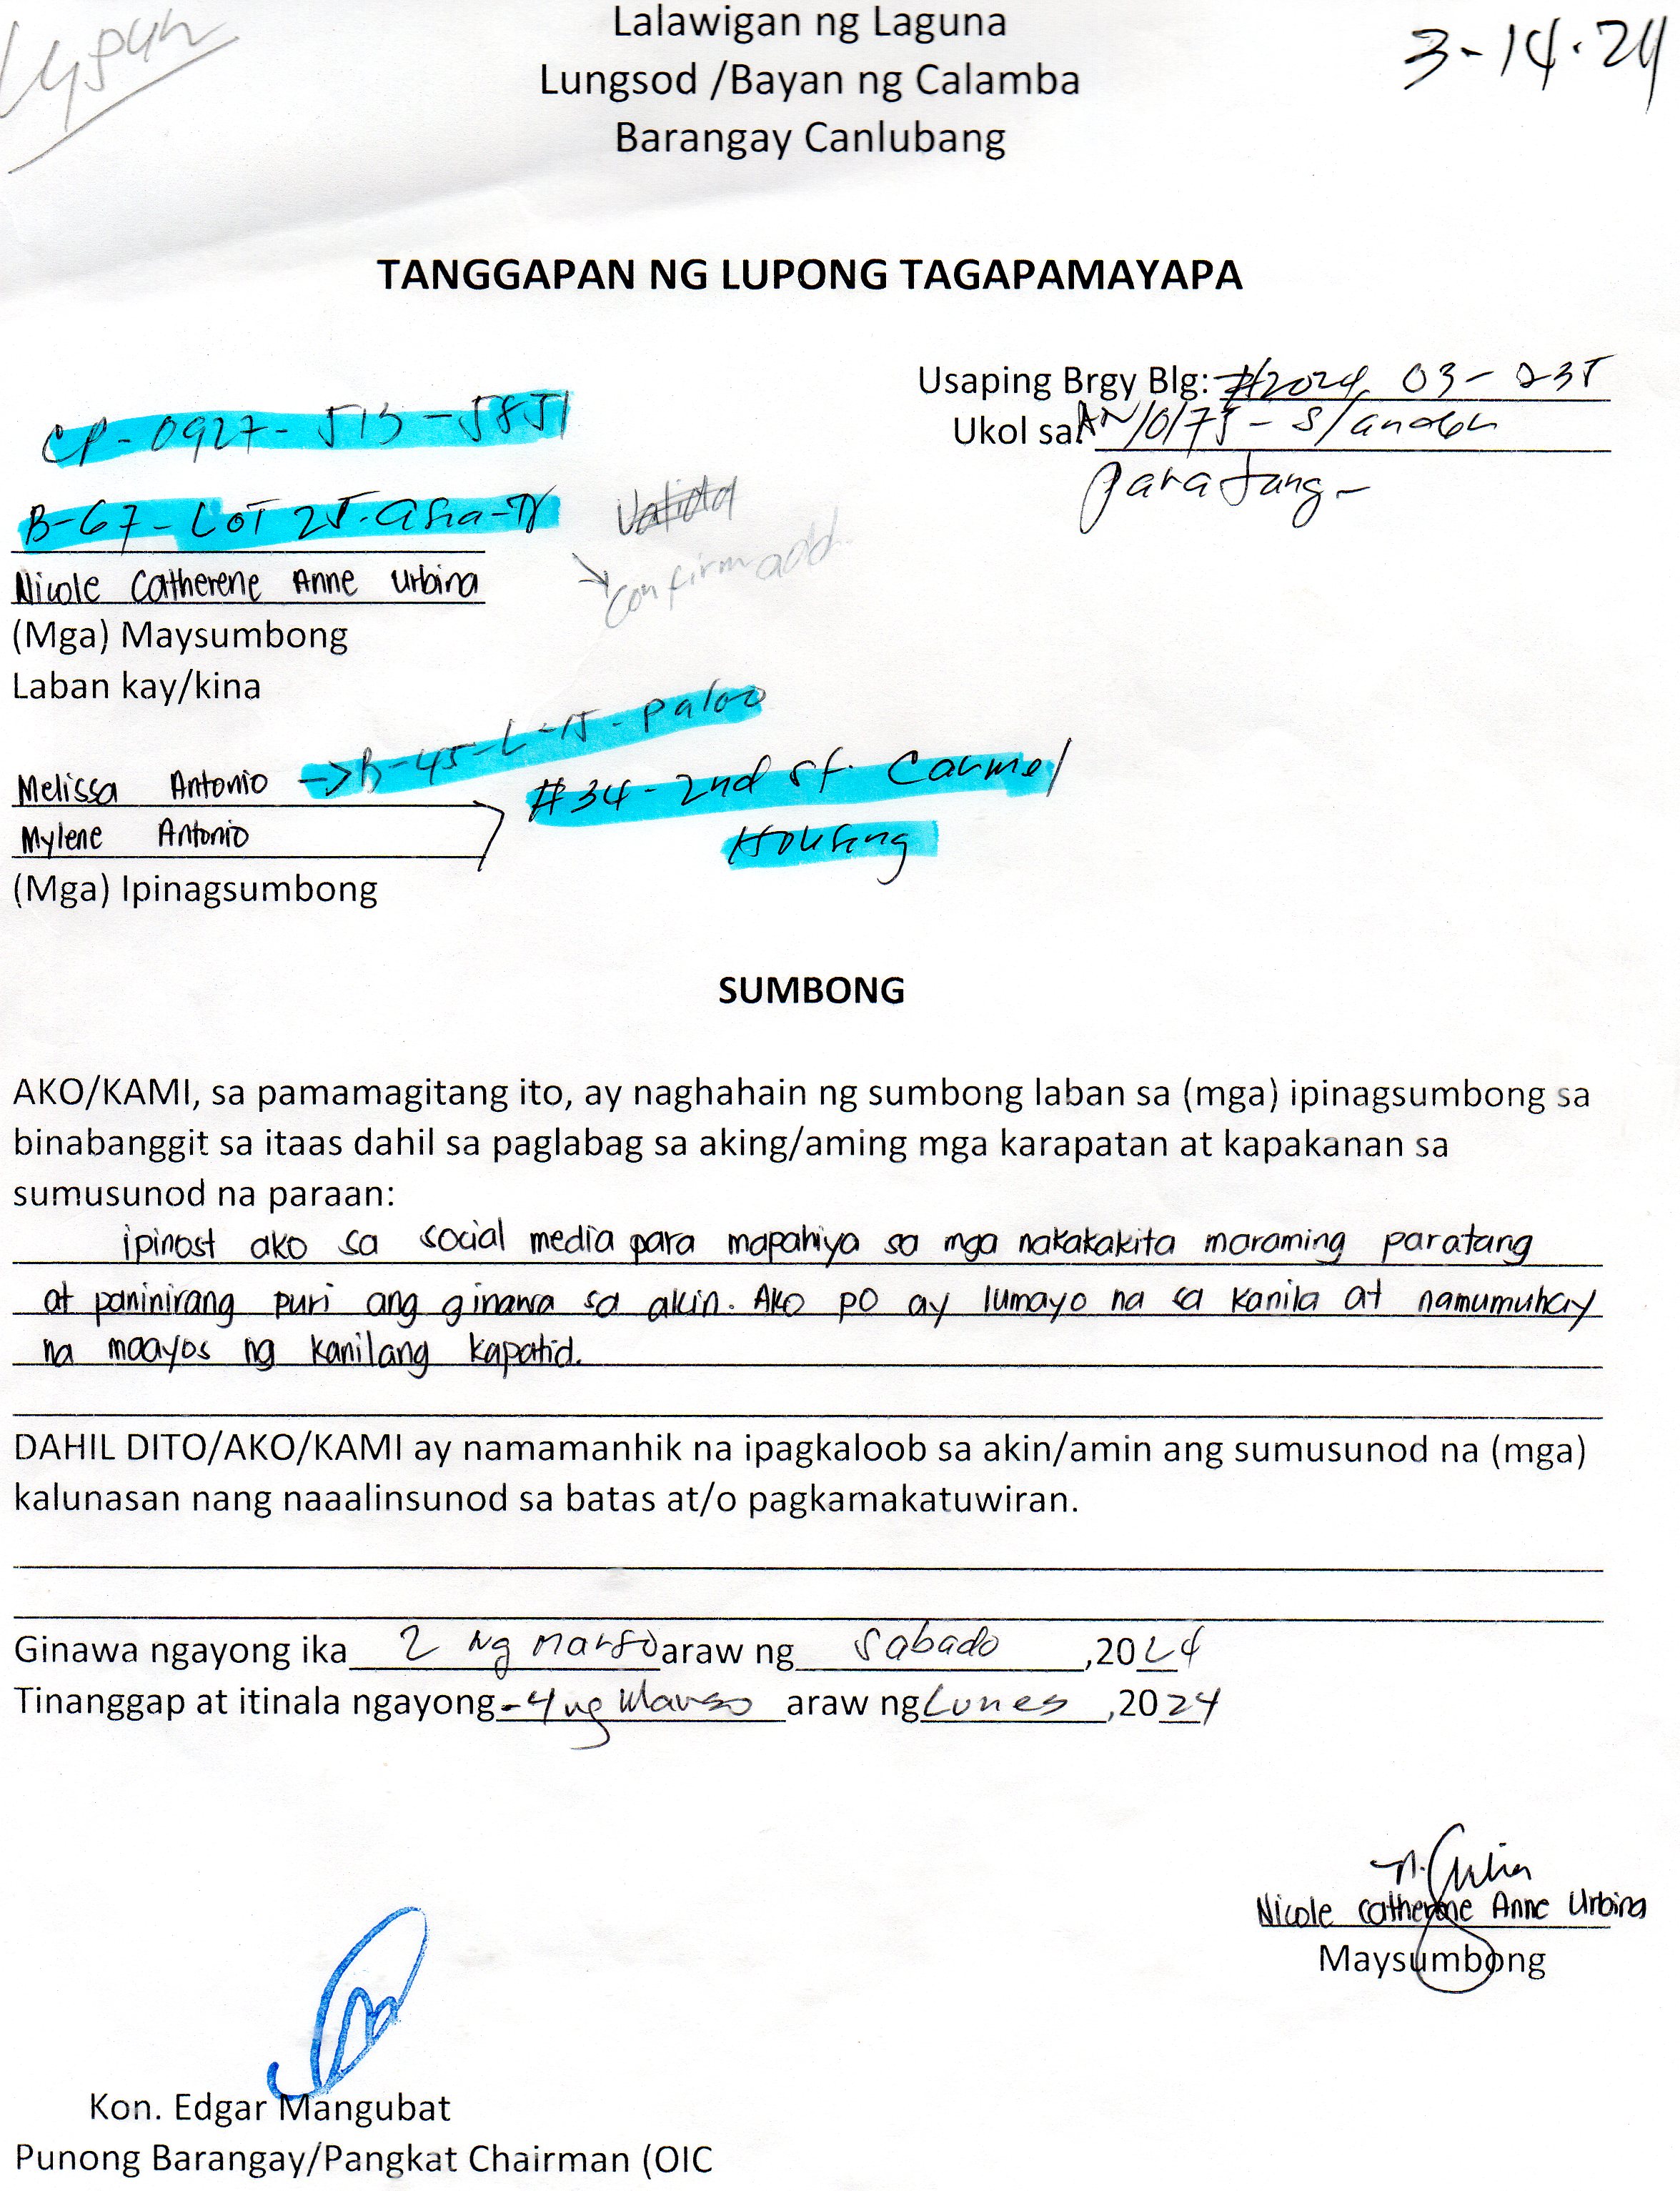 Lalawigan ng Laguna
3-14-24
Lungsod /Bayan ng Calamba
Barangay Canlubang
TANGGAPAN NG LUPONG TAGAPAMAYAPA
Usaping Brgy Blg: #2024 03-235
Ukol sa:
paratang-
CP-0927-513-5851
B-67-LOT 25-Asia-
Confirm add.
Nicole Catherene Anne Urbina
(Mga) Maysumbong
Laban kay/kina
Melissa Antonio ->B-45-L-15-Paloo
#34-2nd St. Carmel
Mylene Antonio
Housing
(Mga) Ipinagsumbong
SUMBONG
AKO/KAMI, sa pamamagitang ito, ay naghahain ng sumbong laban sa (mga) ipinagsumbong sa
binabanggit sa itaas dahil sa paglabag sa aking/aming mga karapatan at kapakanan sa
sumusunod na paraan:
ipinost ako sa social media para mapahiya sa mga nakakakita maraming paratang
at paninirang puri ang ginawa sa akin. Ako po ay lumayo na sa kanila at namumuhay
na maayos ng kanilang kapatid.
DAHIL DITO/AKO/KAMI ay namamanhik na ipagkaloob sa akin/amin ang sumusunod na (mga)
kalunasan nang naaalinsunod sa batas at/o pagkamakatuwiran.
Ginawa ngayong ika 2 ng Marso araw ng Sabado ,2024
Tinanggap at itinala ngayong -4 ng Marso araw ng Lunes ,2024
Nicole Catherene Anne Urbina
Maysumbong
Kon. Edgar Mangubat
Punong Barangay/Pangkat Chairman (OIC